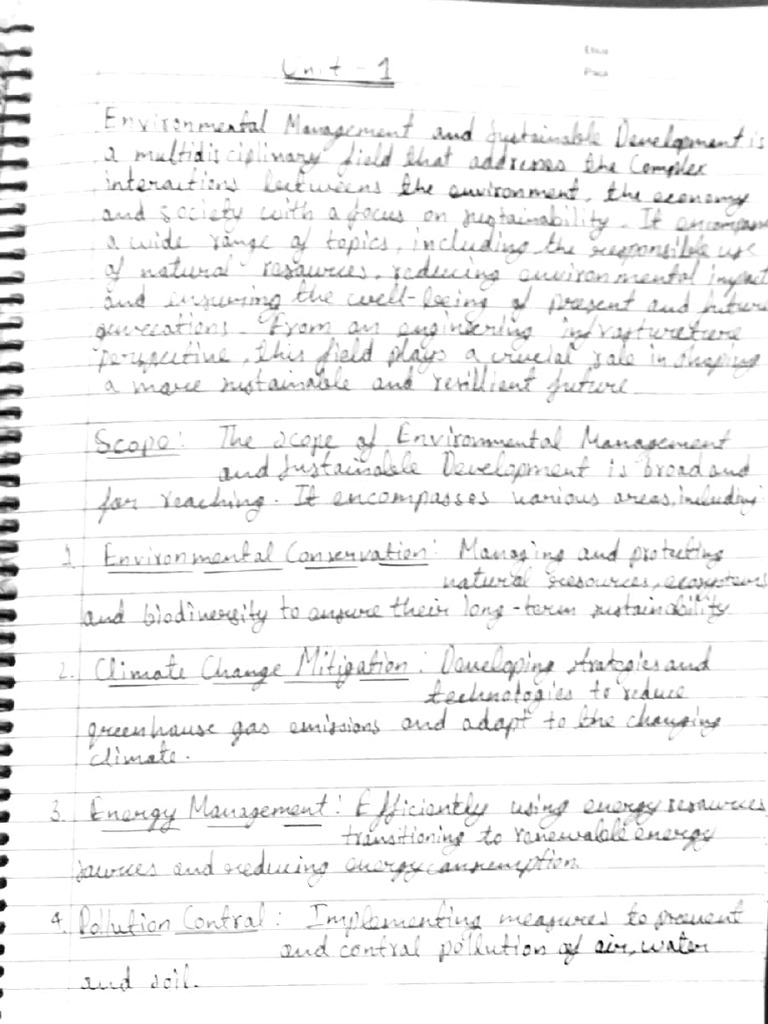 Unit - 1
Environmental Management and Sustainable Development is
a multidisciplinary field that addresses the Complex
interactions betweens the environment, the economy
and society with a focus on sustainability. It encompass
a wide range of topics, including the responsible use
of natural resources, reducing environmental impact
and ensuring the well-being of present and future
generations. From an engineering
perspective, this field plays a crucial role in shaping
a more sustainable and resillient future
Scope: The scope of Environmental Management
and Sustainable Development is broad and
far reaching. It encompasses various areas, including
1. Environmental Conservation: Managing and protecting
natural resources, ecosystems
and biodiversity to ensure their long-term sustainability
2. Climate Change Mitigation: Developing strategies and
technologies to reduce
greenhouse gas emissions and adapt to the changing
climate.
3. Energy Management: Efficiently using energy resources
transitioning to renewable energy
sources and reducing energy consumption.
4. Pollution Control: Implementing measures to prevent
and control pollution of air, water
and soil.